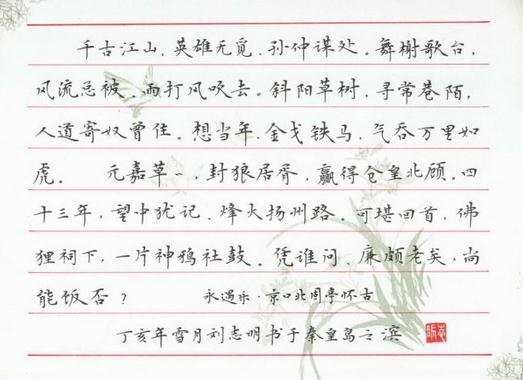 千古江山，英雄无觅，孙仲谋处。舞榭歌台，
风流总被，雨打风吹去。斜阳草树，寻常巷陌，
人道寄奴曾住。想当年，金戈铁马，气吞万里如
虎。 元嘉草一，封狼居胥，赢得仓皇北顾。四
十三年，望中犹记，烽火扬州路。可堪回首，佛
狸祠下，一片神鸦社鼓。凭谁问，廉颇老矣，尚
能饭否？ 永遇乐·京口北固亭怀古
丁亥年雪月刘志明书于秦皇岛之滨